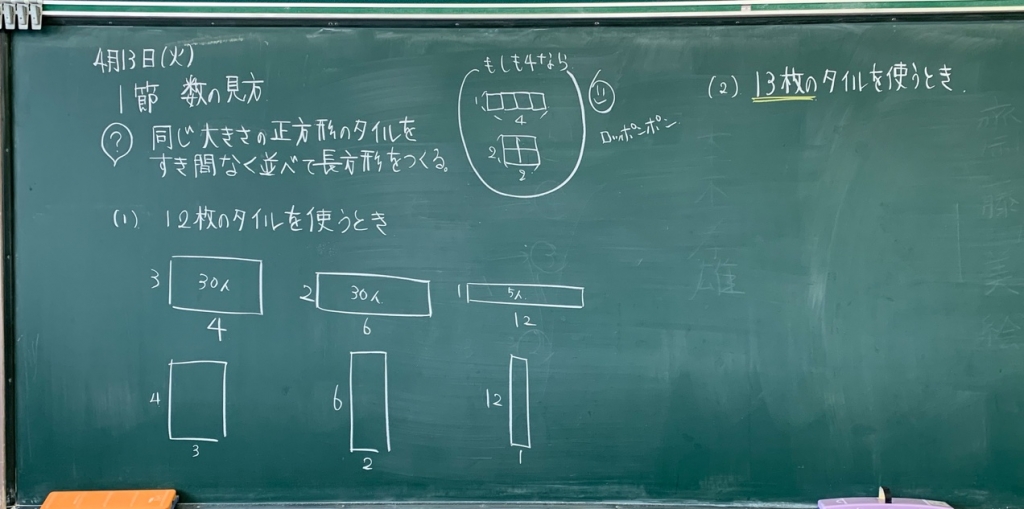 4月13日(火)
1節 数の見方
? 同じ大きさの正方形のタイルを
すき間なく並べて長方形をつくる。
もしも4なら
1
4
2
2
(1) 12枚のタイルを使うとき
3 30人
4
2 30人
6
1 5人
12
4
3
6
2
12
1
(2) 13枚のタイルを使うとき